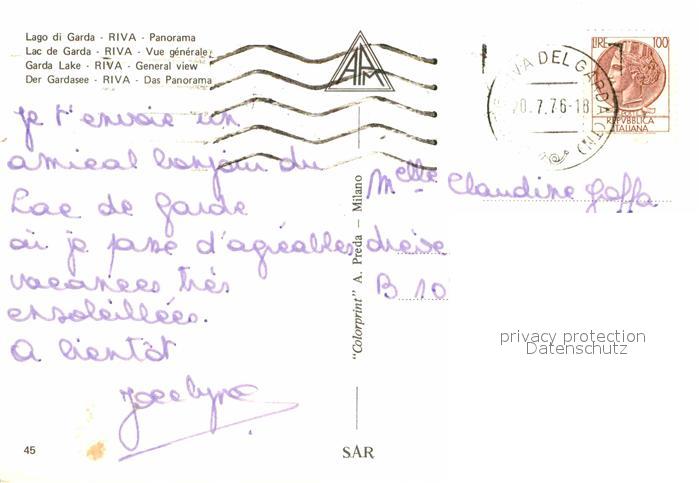 Lago di Garda - RIVA - Panorama
Lac de Garda - RIVA - Vue générale
Garda Lake - RIVA - General view
Der Gardasee - RIVA - Das Panorama
APM
RIVA DEL GARDA (TN)
20.7.76-18
LIRE 100
REPVBBLICA
ITALIANA
Je t'envoie un
amical bonjour du
Lac de Garde
où je passe d'agréables
vacances très
ensoleillées.
A bientôt
Jocelyne
"Colorprint" A. Preda - Milano
Melle Claudine Goffa
drève
B 10
privacy protection
Datenschutz
45
SAR